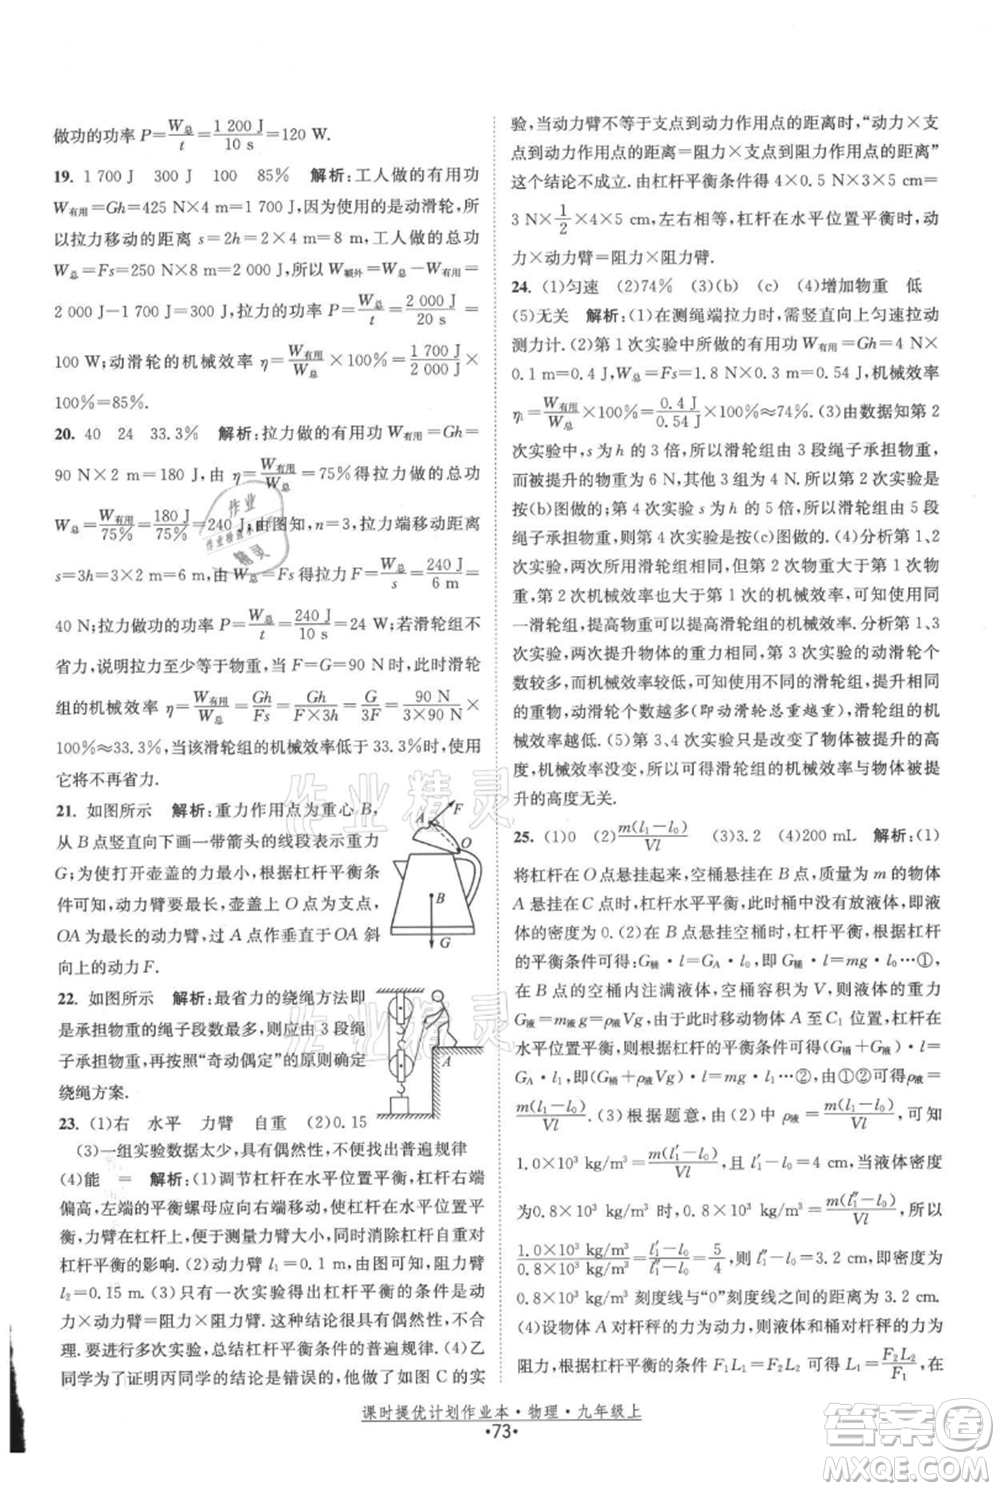 做功的功率 P=W总/t=1 200 J/10 s=120 W.
19. 1 700 J 300 J 100 85% 解析:工人做的有用功
W有用=Gh=425 N×4 m=1 700 J,因为是动滑轮,所
以拉力移动的距离 s=2h=2×4 m=8 m,工人做的总功
W总=Fs=250 N×8 m=2 000 J,所以 W额外=W总-W有用=
2 000 J-1 700 J=300 J;拉力的功率 P=W总/t=2 000 J/20 s=
100 W;动滑轮的机械效率 η=W有用/W总×100%=1 700 J/2 000 J×
100%=85%.
20. 40 24 33.3% 解析:拉力做的有用功 W有用=Gh=
90 N×2 m=180 J,由 η=W有用/W总=75%得拉力做的总功
W总=W有用/75%=180 J/75%=240 J;由图知,n=3,拉力端移动距离
s=3h=3×2 m=6 m,由W总=Fs得拉力 F=W总/s=240 J/6 m=
40 N;拉力做功的功率 P=W总/t=240 J/10 s=24 W;若滑轮组不
省力,说明拉力至少等于物重,当 F=G 时,此时滑轮
组的机械效率 η=W有用/W总=Gh/Fs=Gh/F×3h=G/3F=90 N/3×90 N×
100%≈33.3%,当该滑轮组的机械效率低于 33.3%时,使用
它将不再省力.
21. 如图所示 解析:重力作用点为重心 B,
从 B 点竖直向下画一带箭头的线段为重力
G;要求开壶盖的力最小,根据杠杆平衡条件
可知,动力臂要最长,壶盖上的 O 为支点,
OA 为最长的动力臂,过 A 点作垂直于 OA 斜
向上的动力 F.
A
F
O
B
G
22. 如图所示 解析:最省力的绕绳方法即
是承担物重的绳子段数最多,则应由 3 段绳
子承担物重,再按照“奇动偶定”的原则确定
绕绳方案.
A
23. (1)右 水平 力臂 自重 (2)0.15
(3)一组实验数据太少,具有偶然性,不便找出普遍规律
(4)能 = 解析:(1)调节杠杆在水平位置平衡,右端
偏高,左端的平衡螺母应向右端移动,使杠杆在水平位置
平衡,这样做是为了便于测量力臂,同时消除杠杆自重对
杠杆平衡的影响.(2)由题意知,阻力臂 l1=0.1 m,动力臂
l2=0.15 m.(3)只有一次实验得出杠杆平衡的条件是动
力×动力臂=阻力×阻力臂.这种结论很具有偶然性,
要进行多次实验,总结杠杆平衡条件的普遍规律.(4)乙
同学为了证明丙同学的结论是错误的,他做了如图 C 的实
验,当动力臂不等于支点到动力作用点的距离时,“动力×支
点到动力作用点的距离=阻力×支点到阻力作用点的距离”
这个结论不成立.由杠杆平衡条件得 4×0.5 N×3 cm=
3 N×1/2×4 cm,左右相等,杠杆在水平位置平衡时,动
力×动力臂=阻力×阻力臂.
24. (1)匀速 (2)74% (3)(b) (c) (4)增加物重 低
(5)无关 解析:(1)在测绳端拉力时,需竖直向上匀速拉动
测力计.(2)第 1 次实验中所做的有用功 W=Gh=4 N×
0.1 m=0.4 J,总功 W总=Fs=1.8 N×0.3 m=0.54 J,机械效率
η=W有用/W总×100%=0.4 J/0.54 J×100%≈74%.(3)由数据知第 2
次实验中,s 为 h 的 3 倍,说明滑轮组由 3 段绳子承担物重,
而被提升的物重为 6 N,所以滑轮组较省力,所以第 2 次实验
是按(b)图做的.第 4 次实验 s 为 h 的 5 倍,说明滑轮组由 5 段
绳子承担物重,所以第 4 次实验是按(c)图做的.(4)分析第 1、2
次实验,两次提升物重时第 2 次的物重大于第 1 次的物重,
且第 2 次的机械效率高于第 1 次的机械效率,所以使用同
一滑轮组,提高物重可以提高滑轮组的机械效率.分析第 1、3
次实验,两次提升物体的重力相等,但第 3 次使用的滑轮个
数较多,机械效率较低,所以使用不同的滑轮组,提升相同
的重物,动滑轮个数越多(即动滑轮总重越重),滑轮组的机械
效率越低.(5)第 3、4 次实验只是改变了物体被提升的高
度,机械效率没变,所以可得出滑轮组的机械效率与物体被提
升的高度无关.
25. (1)0 (2)m(l1-l0)/Vl (3)3.2 (4)200 mL 解析:(1)
将杠杆在 O 点悬挂起来,空桶悬挂在 B 点,质量为 m 的物
体 A 悬挂在 C 点时,杠杆水平平衡,此时桶中液体的密
度为 0.(2)在 B 点悬挂空桶时,杠杆平衡,根据杠杆
的平衡条件可以得出,G桶·l=GA·l0,G桶·l=mg·l0…①;
在 B 点的空桶内注满液体,空桶悬挂在 B 点,液体的重力
G液=m液g=ρ液Vg,此时移动物体 A 至 C1 位置,杠杆在
水平位置平衡,根据杠杆的平衡条件可得,(G桶+G液)·l=
GA·l1,(G桶+ρ液Vg)·l=mg·l1…②,由①②可得ρ液=
m(l1-l0)/Vl.(3)根据题意,由(2)可得 ρ液=m(l1-l0)/Vl,可知
1.0×10³ kg/m³=m(l1′-l0)/Vl,且 l1′-l0=4 cm,当液体密度
为0.8×10³ kg/m³时,0.8×10³ kg/m³=m(l1″-l0)/Vl,所以
1.0×10³ kg/m³/0.8×10³ kg/m³=l1′-l0/l1″-l0=5/4,则 l1″-l0=3.2 cm,所以
0.8×10³ kg/m³ 刻度线与“0”刻度线之间的距离为 3.2 cm.
(4)设物体 A 对杆秤的力为动力,液体和桶对杆秤的力为
阻力,根据杠杆平衡的条件 F1L1=F2L2 可得,F1=F2L2/L1,在
课时提优计划作业本·物理·九年级上
·73·
作业精灵
答案圈
MXQE.COM